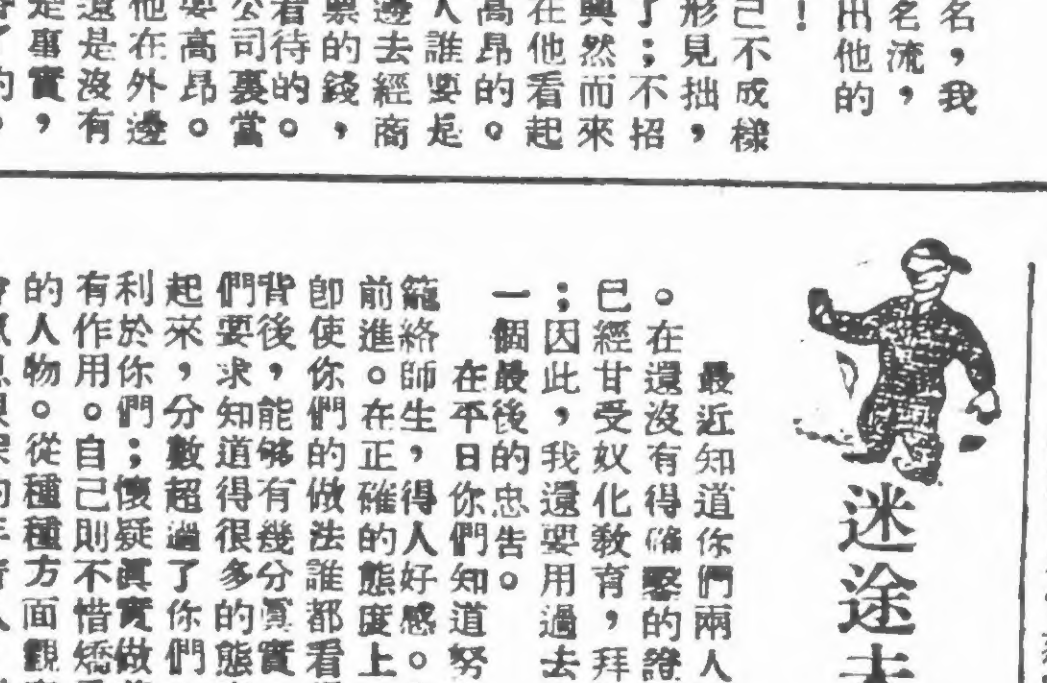 名，我
名流，
出他的
！
己不成樣
形見拙，
了；不招
興然而來
在他看起
高昂的。
人誰要是
邊去經商
票的錢，
看待的。
公司裏當
要高昂。
他在外邊
還是沒有
是事實，
的。
迷途
最近知道你們兩人
。在還沒有得確鑿的證
已經甘受奴化敎育，拜
；因此，我還要用過去
一個最後的忠告。
在平日你們知道努
籠絡師生，得人好感。
前進。在正確的態度上
卽使你們的做法誰都看
背後，能够有幾分眞實
們要求知道得很多的態
起來，分數超過了你們
利於你們；懷疑眞實做
有作用。自己則不惜矯
的人物。從種種方面觀